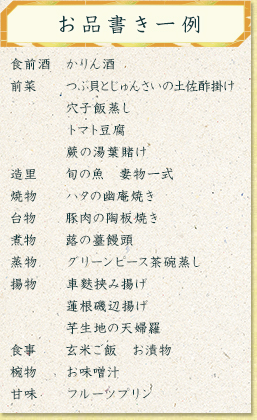 お品書き一例
食前酒 かりん酒
前菜 つぶ貝とじゅんさいの土佐酢掛け
穴子飯蒸し
トマト豆腐
蕨の湯葉賭け
造里 旬の魚 妻物一式
焼物 ハタの幽庵焼き
台物 豚肉の陶板焼き
煮物 蕗の薹饅頭
蒸物 グリーンピース茶碗蒸し
揚物 車麩挟み揚げ
蓮根磯辺揚げ
芋生地の天婦羅
食事 玄米ご飯 お漬物
椀物 お味噌汁
甘味 フルーツプリン